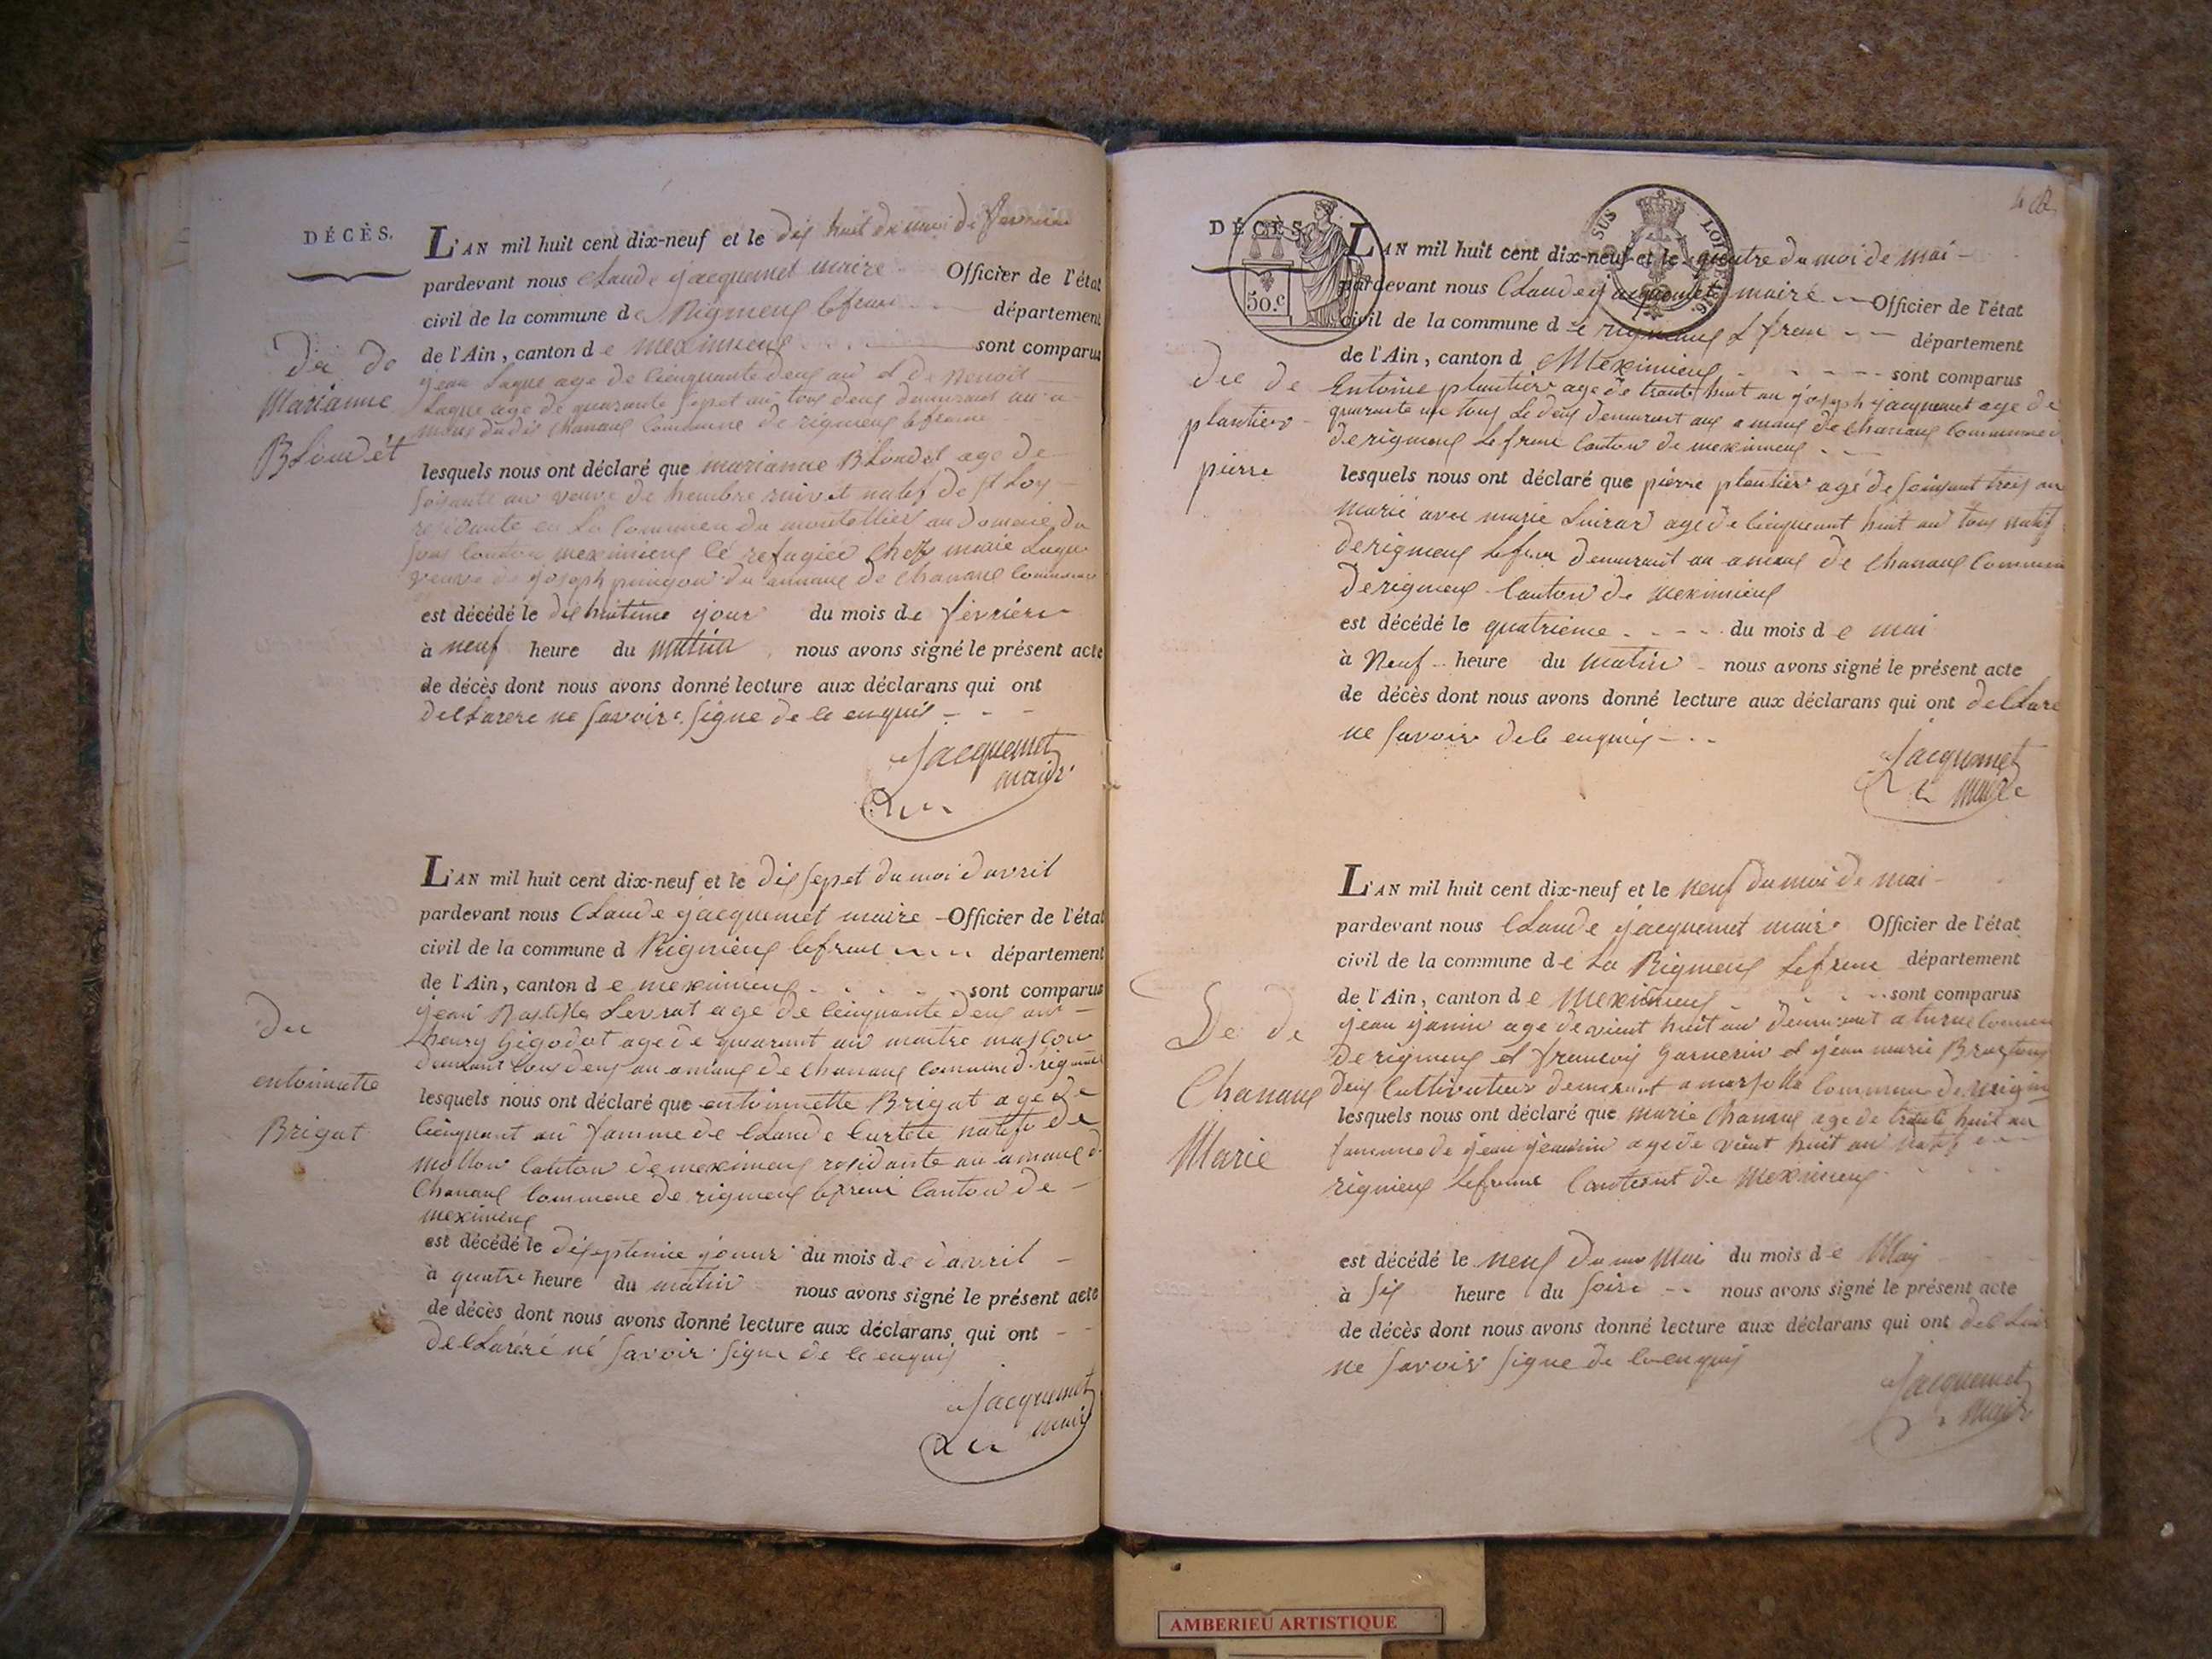 DÉCÈS.
L'AN mil huit cent dix-neuf et le dix huit du moi de fevrier
pardevant nous Claude jacquemet maire Officier de l'état
civil de la commune de Rigneux lefranc département
de l'Ain, canton de meximieux sont comparus
jean Lague age de cienquante deux an et de Benoit
Lague age de quarante sepet an tous deux demurant au a
maux dudit chanaux commune de rigneux lefranc
de de
Marianne
BLondet
lesquels nous ont déclaré que marianne BLondet age de
soisante an veuve de natif de st Loy
residante en La commune du montellier au domaine du
canton meximieux cé refugiée chez marie Lague
veuve de joseph du amaux de chanaux commune
est décédé le dishuitime jour du mois de févriére
à neuf heure du matin nous avons signé le présent acte
de décès dont nous avons donné lecture aux déclarans qui ont
delLarere ne savoire signe de ce enquis
Jacquemet
maire
L'AN mil huit cent dix-neuf et le dis sepet du moi davril
pardevant nous CLaude jacquemet maire Officier de l'état
civil de la commune d Rignieux lefranc département
de l'Ain, canton de meximieux sont comparus
jean Levrat age de cienquante deux an
henry Gigodot age de quarant an maitre masson
demurant tous deux au amaux de chanaux commune d. rigneux
de
entoinette
Brigat
lesquels nous ont déclaré que entoinnette Brigat age de
cienquant an famme de CLaude Curtete natife de
mollon canton de meximieux residante au amaux d
Chanaux commene de rigneux lefranc canton de
meximieux
est décédé le diseptemie jouur du mois de davril
à quatre heure du matin nous avons signé le présent acte
de décès dont nous avons donné lecture aux déclarans qui ont
delLaréré né savoir signe de ce enquis
Jacquemet
maire
DÉCÈS.
50.c
SUS
LOI
L'AN mil huit cent dix-neuf et le quatre du moi de mai
pardevant nous CLaude jacquemet maire Officier de l'état
civil de la commune de rigneux Lefranc département
de l'Ain, canton d Meximieux sont comparus
Entoine plantier age de trante huit an joseph jacquemet age de
quarante un tous Le deux demurant aux amaux de chanaux commune
de rigneux Lefranc canton de meximieux
dee de
plantier
pierre
lesquels nous ont déclaré que pierre plantier agé de soissant treis an
marié avec marie age de cienquant huit an tous natif
de rigneux Lefranc demurant au amaux de chanaux commune
de rigneux canton de meximieux
est décédé le quatrieme du mois de mai
à Neuf heure du matin nous avons signé le présent acte
de décès dont nous avons donné lecture aux déclarans qui ont delLare
ne savoir de le enquis
Jacquemet
maire
L'AN mil huit cent dix-neuf et le neuf du moi de mai
pardevant nous CLaude jacquemet maire Officier de l'état
civil de la commune de La Rigneux Lefranc département
de l'Ain, canton de Meximieux sont comparus
jean janin age de vient huit an demurant a
de rigneux et francois Garnerin et jean marie
deux cultivateur demurant a commune de rigneux
De de
Chanaux
Marie
lesquels nous ont déclaré que marie Chanaux age de trante huit an
famme de jean age de vient huit an natif
rignieux Lefranc de meximieux
est décédé le neuf du moi Mai du mois de May
à six heure du soire nous avons signé le présent acte
de décès dont nous avons donné lecture aux déclarans qui ont
ne savoir signe de enquis
Jacquemet
maire
AMBERIEU ARTISTIQUE